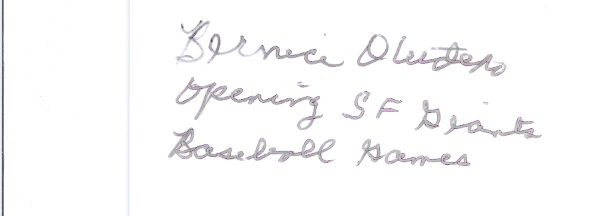 Bernice
Opening SF Giants
Baseball Games